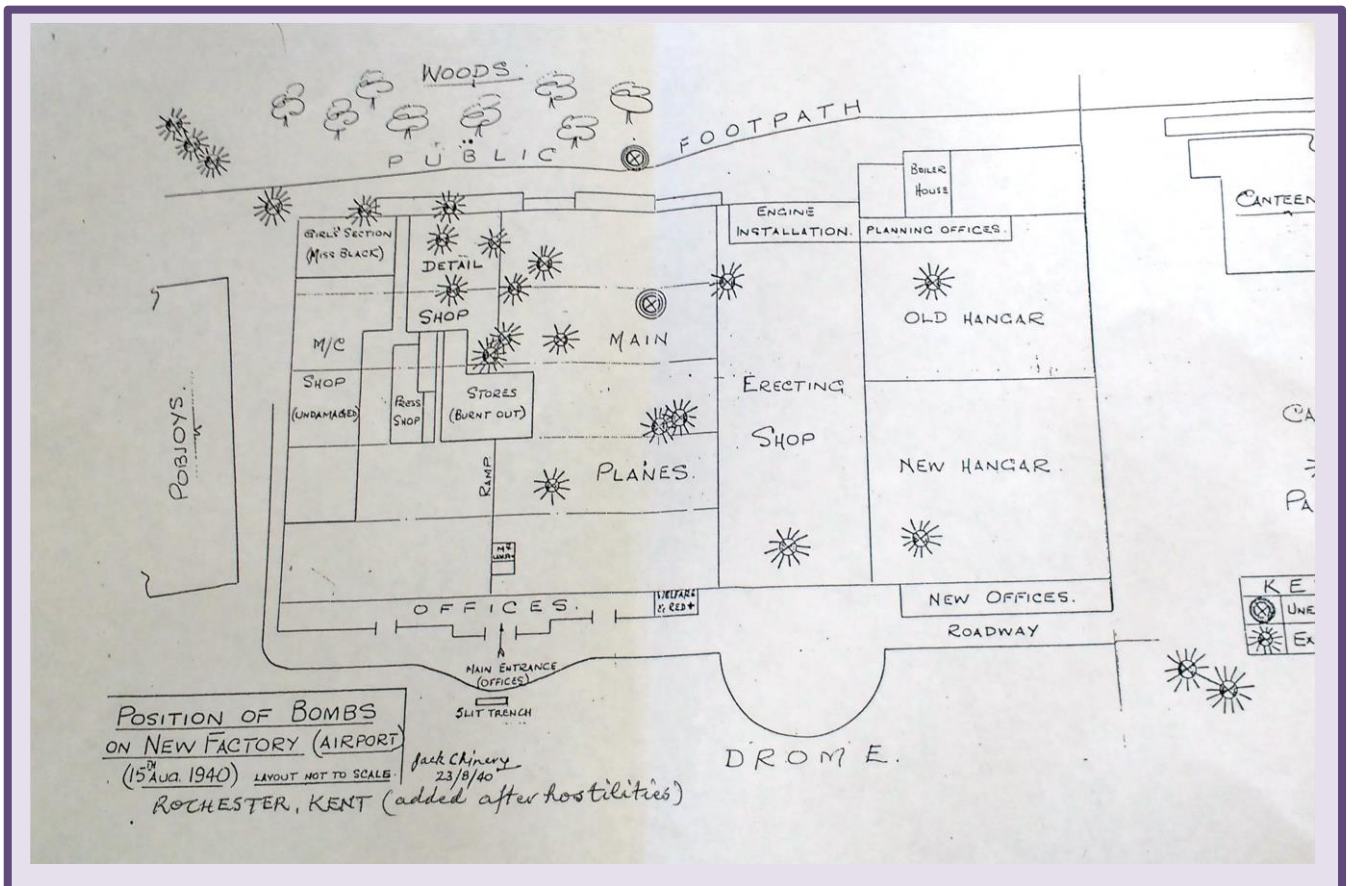 WOODS.
PUBLIC FOOTPATH
BOILER
HOUSE
CANTEEN
ENGINE
INSTALLATION.
PLANNING OFFICES.
GIRLS' SECTION
(MISS BLACK)
DETAIL
SHOP
OLD HANGAR
MAIN
M/C
SHOP
(UNDAMAGED)
PRESS
SHOP
STORES
(BURNT OUT)
ERECTING
SHOP
POBJOYS.
RAMP.
PLANES.
NEW HANGAR.
CA
PA
OFFICES.
WELFARE
& RED +
NEW OFFICES.
ROADWAY
KE
UNE
EX
MAIN ENTRANCE
(OFFICES)
SLIT TRENCH
DROME.
POSITION OF BOMBS
ON NEW FACTORY (AIRPORT)
(15TH AUG. 1940) LAYOUT NOT TO SCALE.
Jack Chinery
23/8/40
ROCHESTER, KENT (added after hostilities)